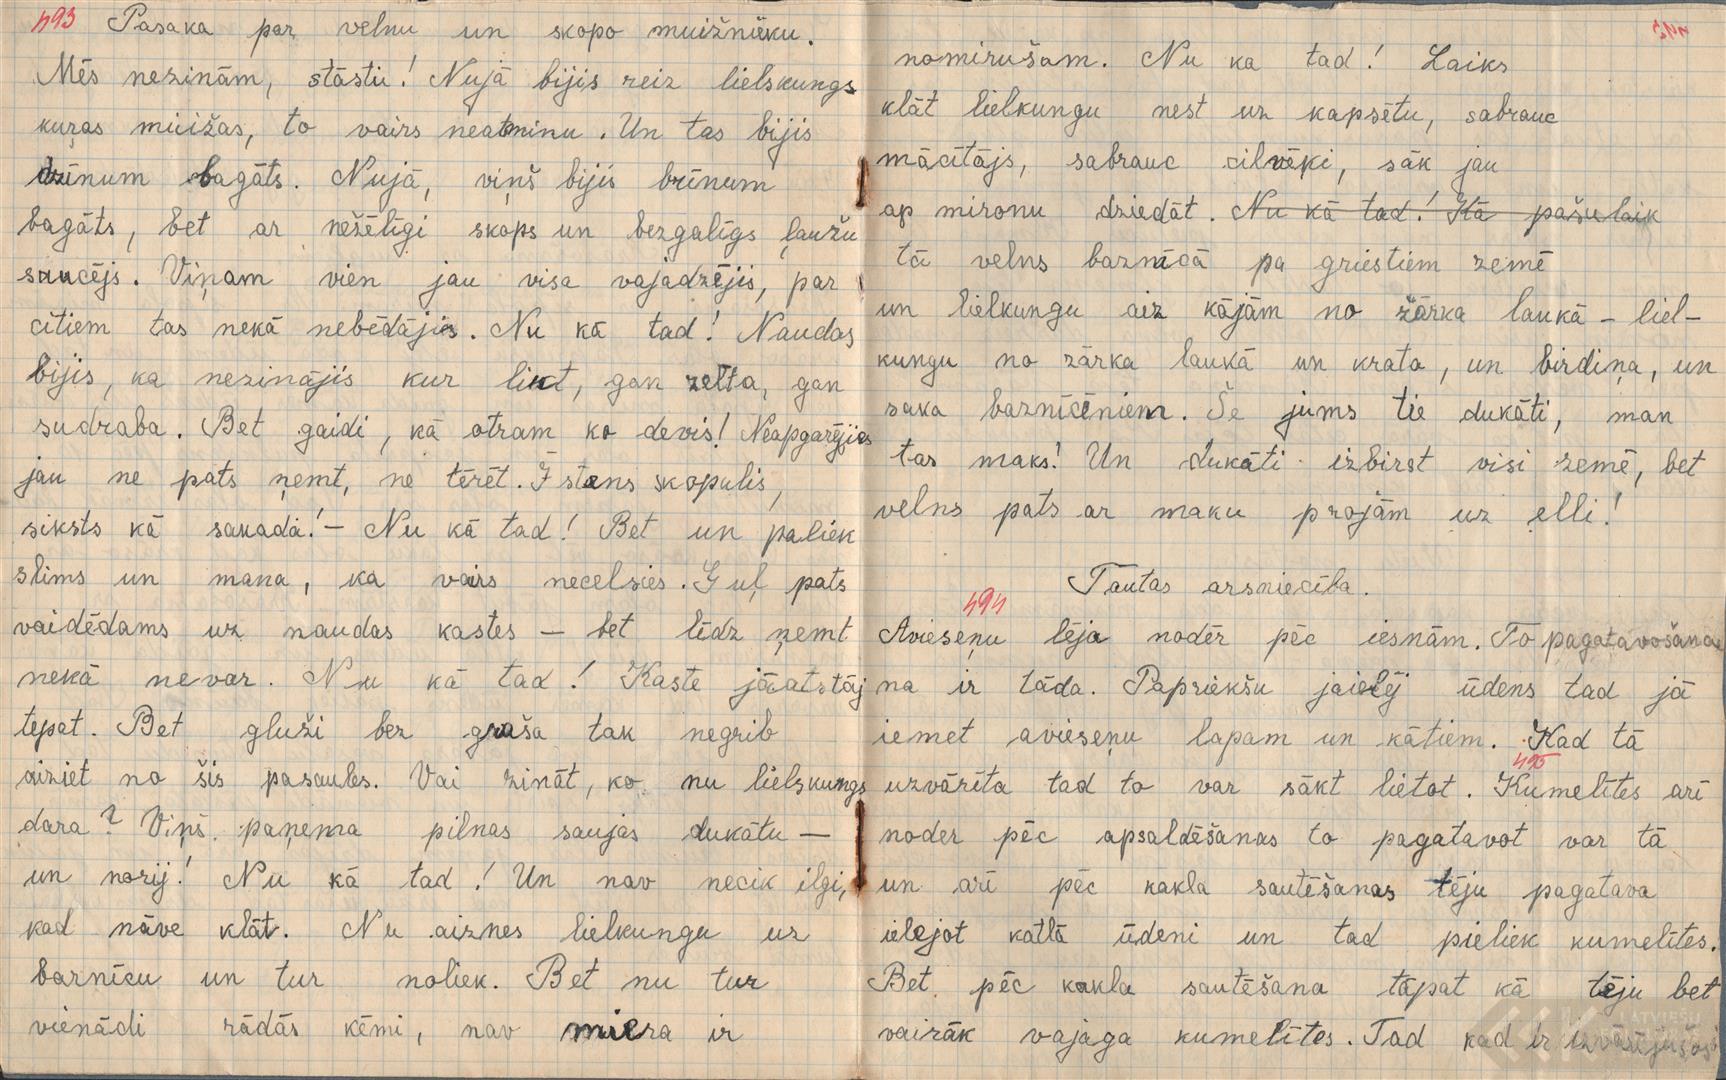 493 Pasaka par velnu un skopo muižnieku.
Mēs nezinām, stāstu! Nujā bijis reiz lielskungs
kuŗas muižas, to vairs neatminu. Un tas bijis
brīnum bagāts. Nujā, viņš bijis brīnum
bagāts, bet ar nežēlīgi skops un bezgalīgs ļaužu
saucējs. Viņam vien jau visa vajadzējis, par
citiem tas nekā nebēdājis. Nu kā tad! Naudas
bijis, ka nezinājis kur likt, gan zelta, gan
sudraba. Bet gaidi, kā otram ko devis! Neapgarējies
jau ne pats ņemt, ne tērēt. Īstens skopulis,
siksts kā sakada! – Nu kā tad! Bet un paliek
slims un mana, ka vairs necelsies. Guļ pats
vaidēdams uz naudas kastes – bet līdz ņemt
nekā nevar. Nu kā tad! Kaste jāatstāj
tepat. Bet gluži bez graša tak negrib
aiziet no šīs pasaules. Vai zināt, ko nu lielskungs
dara? Viņš paņema pilnas saujas dukātu –
un norij! Nu kā tad! Un nav necik ilgi,
kad nāve klāt. Nu aiznes lielkungu uz
baznīcu un tur noliek. Bet nu tur
vienādi rādās ķēmi, nav miera ir
nomirušam. Nu ka tad! Laiks
klāt lielkungu nest uz kapsētu, sabrauc
mācītājs, sabrauc cilvēki, sāk jau
ap mironu dziedāt. Nu kā tad! Kā pašulaik
tā velns baznīcā pa griestiem zemē
un lielkungu aiz kājām no zārka laukā – liel-
kungu no zārka laukā un krata, un birdina, un
saka baznīcēniem. Še jums tie dukāti, man
tas maks! Un dukāti izbirst visi zemē, bet
velns pats ar maku projām uz elli!
Tautas arsniecība.
494
Avieseņu tēja nodēr pēc iesnām. To pagatavošana
na ir tāda. Papriekšu jaielēj ūdens tad jā
iemet avieseņu lapam un kātiem. Kad tā
495
uzvārīta tad to var sākt lietot. Kumelītes arī
noder pēc apsaldēšanas to pagatavot var tā
un arī pēc kakla sautēšanas tēju pagatava
ielejot katlā ūdeni un tad pieliek kumelītes.
Bet pēc kakla sautēšana tāpat kā tēju bet
vairāk vajaga kumelītes. Tad kad ir izvārījušas